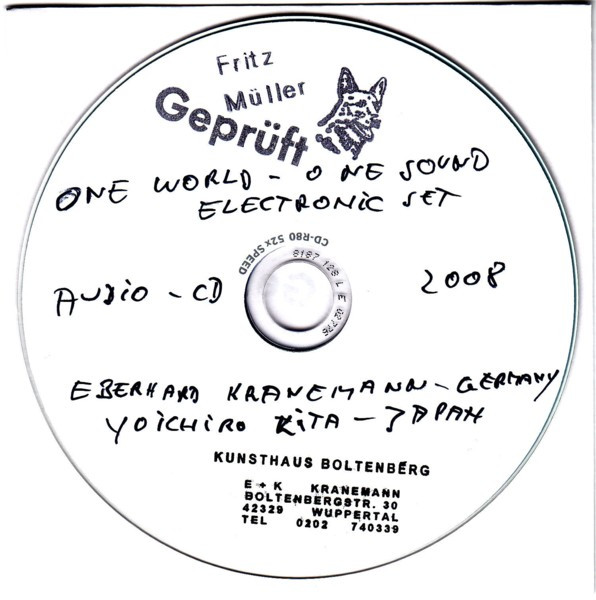 Fritz
Müller
Geprüft
ONE WORLD - ONE SOUND
ELECTRONIC SET
CD-R80 52x SPEED
8187 128 L E 02776
AUDiO - CD 2008
EBERHARD KRANEMANN - GERMANY
YOiCHiRO KiTA - JAPAN
KUNSTHAUS BOLTENBERG
E + K KRANEMANN
BOLTENBERGSTR. 30
42329 WUPPERTAL
TEL 0202 740339